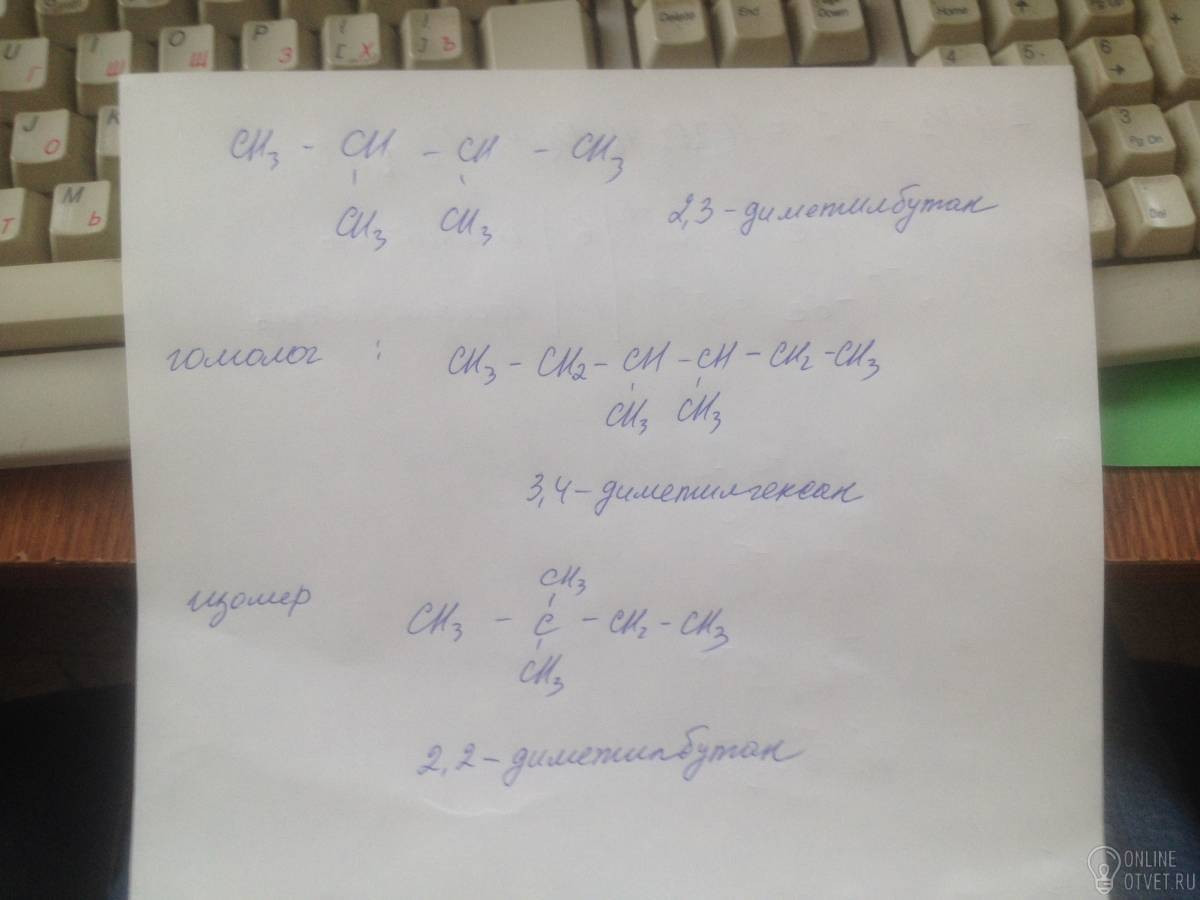 U Г
I Ш
O Щ
P З
{ [ Х
} ] Ъ
Delete
End
Down
Home
4
5
6
J О
K
М Ь
Т
3
Pg Dn
Del
+
CH3 - CH - CH - CH3
CH3 CH3
2,3-диметилбутан
гомолог : CH3 - CH2 - CH - CH - CH2 - CH3
CH3 CH3
3,4-диметилгексан
CH3
изомер CH3 - C - CH2 - CH3
CH3
2,2-диметилбутан
ONLINE
OTVET.RU